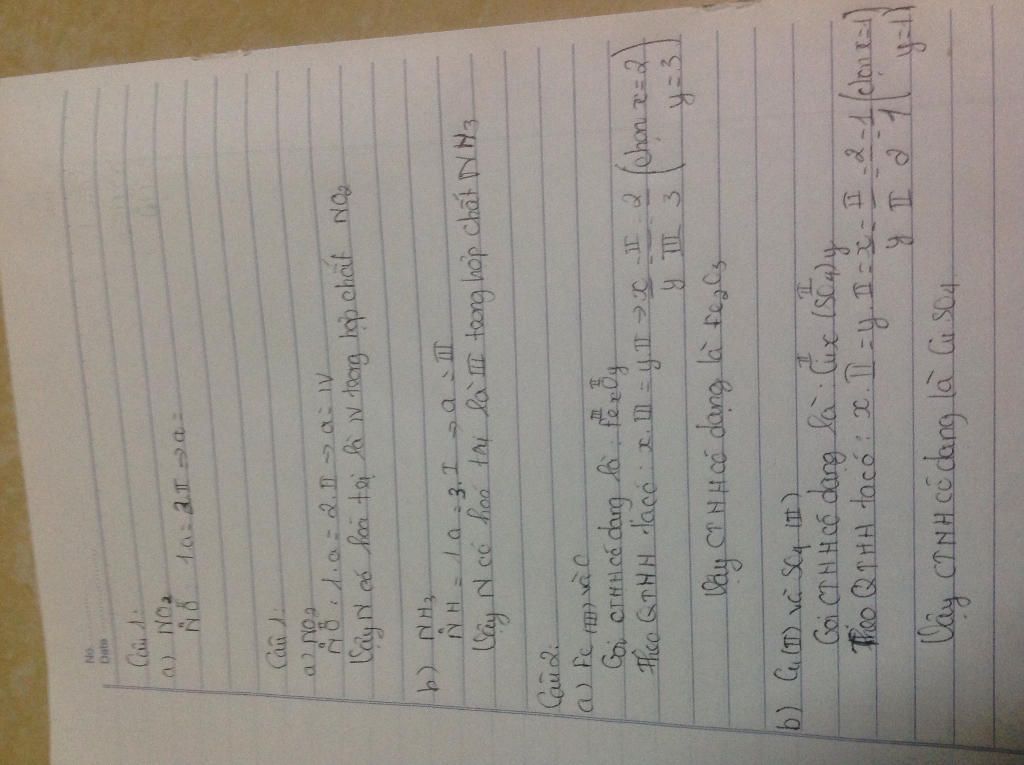 No.
Date
Câu 1:
a) NO₂
a II
NO : 1a = 2II → a =
Câu 1:
a) NO₂
a II
NO : 1.a = 2.II → a = IV
Vậy N có hoá trị là IV trong hợp chất NO₂
b) NH₃
a
NH = 1a = 3.I → a = III
Vậy N có hoá trị là III trong hợp chất NH₃
Câu 2:
a) Fe (III) và O
Gọi CTHH có dạng là: FexOy
III II
Theo QTHH ta có: x III = y II → x/y = II/III = 2/3 (chọn x = 2 y = 3)
Vậy CTHH có dạng là Fe₂O₃
b) Cu (II) và SO₄ (II)
II II
Gọi CTHH có dạng là: Cux (SO₄)y
Theo QTHH ta có: x. II = y. II = x/y = II/II = 2/2 = 1/1 (chọn x = 1 y = 1)
Vậy CTHH có dạng là CuSO₄